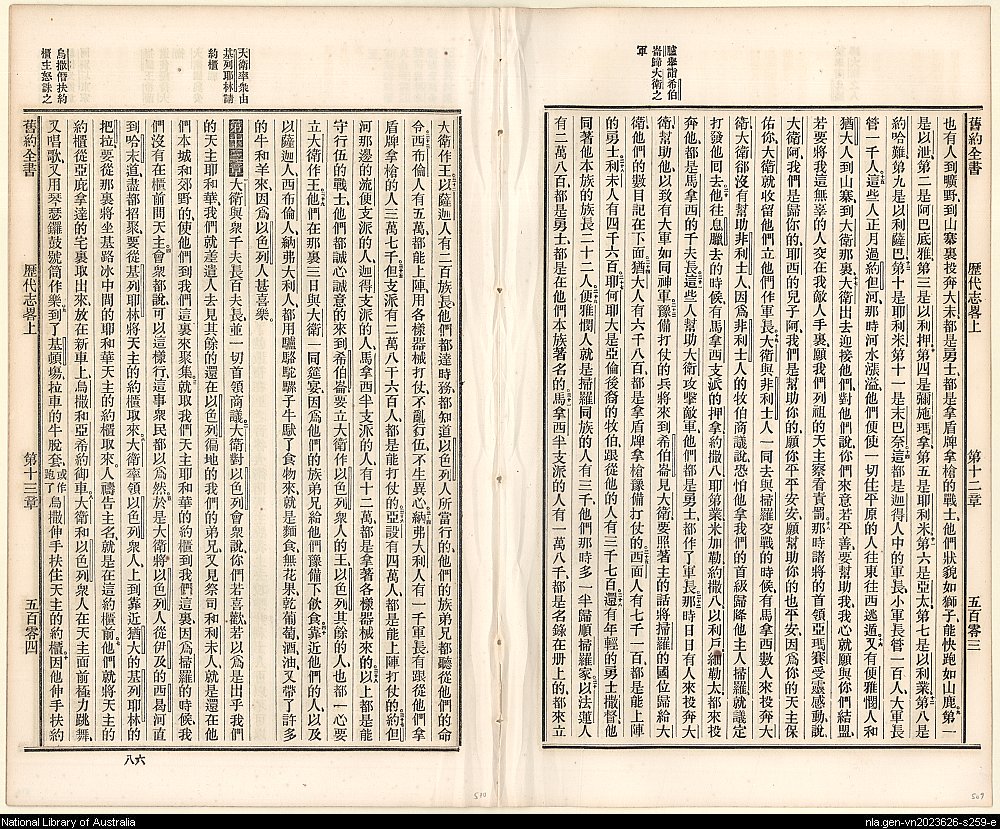 臚舉詣希伯
崙歸大衛之
軍
舊約全書
歷代志畧上
第十二章
五百零三
也有人到曠野到山寨裏投奔大衛都是勇士都是拿盾牌拿槍的戰士他們狀貌如獅子能快跑如山鹿第一
是以泄第二是阿巴底雅第三是以利押第四是彌施瑪拿第五是耶利米第六是亞太第七是以利業第八是
約哈難第九是以利薩巴第十是耶利米第十一是末巴奈這都是迦得人中的軍長小軍長管一百人大軍長
管一千人這些人正月過約但河那時河水漲溢他們便使一切住平原的人往東往西逃遁又有便雅憫人和
猶大人到山寨到大衛那裏大衛出去迎接他們對他們說你們來意若平善要幫助我我心就願與你們結盟
若要將我這無辜的人交在我敵人手裏願我們列祖的天主察看責罰那時諸將的首領亞瑪賽受靈感動說
大衛阿我們是歸你的耶西的兒子阿我們是幫助你的願你平平安安願幫助你的也平安因爲你的天主保
佑你大衛就收留他們立他們作軍長大衛與非利士人一同去與掃羅交戰的時候有馬拿西數人來投奔大
衛大衛卻沒有幫助非利士人因爲非利士人的牧伯商議說恐怕他拿我們的首級歸降他主人掃羅就議定
打發他回去他往息臘去的時候有馬拿西支派的押拿約撒八耶第業米加勒約撒八以利戶洗勒太都來投
奔他他們都是馬拿西的千夫長這些人幫助大衛攻擊敵軍他們都是勇士都作了軍長那時日日有人來投奔大
衛幫助他以致有大軍如同神軍豫備打仗的兵將來到希伯崙見大衛要照著主的話將掃羅的國位歸給大
衛他們的數目記在下面猶大人有六千八百都是拿盾牌拿槍豫備打仗的西面人有七千一百都是能上陣
的勇士利未人有四千六百耶何耶大是亞倫後裔的牧伯跟從他的人有三千七百還有年輕的勇士撒督他
同著他本族的族長二十二人便雅憫人就是掃羅同族的人有三千他們那時多一半歸順掃羅家以法蓮人
有二萬八百都是勇士都是在他們本族著名的馬拿西半支派的人有一萬八千都是名錄在册上的都來立
大衛作王以薩迦人有二百族長他們都達時務都知道以色列人所當行的他們的族弟兄都聽從他們的命
令西布倫人有五萬都能上陣用各樣器械打仗不亂行伍不生異心納弗大利人有一千軍長有跟從他們拿
盾牌拿槍的人三萬七千但支派有二萬八千六百人都是能打仗的亞設有四萬人都是能上陣打仗的約但
河那邊的流便支派的人迦得支派的人馬拿西半支派的人有十二萬都是拿著各樣器械來的以上都是能
守行伍的戰士他們都誠心誠意的來到希伯崙要立大衛作以色列衆人的王以色列其餘的人也都一心要
立大衛作王他們在那裏三日與大衛一同筵宴因爲他們的族弟兄給他們豫備下飲食靠近他們的人以及
以薩迦人西布倫人納弗大利人都用驢駱駝騾子牛馱了食物來就是麵食無花果乾葡萄酒油又帶了許多
的牛和羊來因爲以色列人甚喜樂
第十三章大衛與衆千夫長百夫長並一切首領商議大衛對以色列會衆說你們若喜歡若以爲是出乎我們
的天主耶和華我們就差遣人去見其餘的還在以色列徧地的我們的弟兄又見祭司和利未人就是還在他
們本城和郊野的使他們到我們這裏來聚集就取我們天主耶和華的約櫃到我們這裏因爲掃羅的時候我
們沒有在櫃前問天主會衆都說可以這樣行這事衆民都以爲然於是大衛將以色列人從伊及的西曷河直
到哈末道盡都招聚要從基列耶林將天主的約櫃取來大衛率領以色列衆人上到靠近猶大的基列耶林的
把拉要從那裏將坐基路冰中間的耶和華天主的約櫃取來人禱告主名就是在這約櫃前他們就將天主的
約櫃從亞庇拿達的宅裏取出來放在新車上烏撒和亞希約御車大衛和以色列衆人在天主面前極力跳舞
又唱歌又用琴瑟鑼鼓號筒作樂到了基頓塲拉車的牛脫套或作跑了烏撒伸手扶住天主的約櫃因他伸手扶約
舊約全書
歷代志畧上
第十三章
五百零四
大衛率衆由
基列耶林請
約櫃
烏撒僭扶約
櫃主怒誅之
八六
510
509
National Library of Australia
nla.gen-vn2023626-s259-e